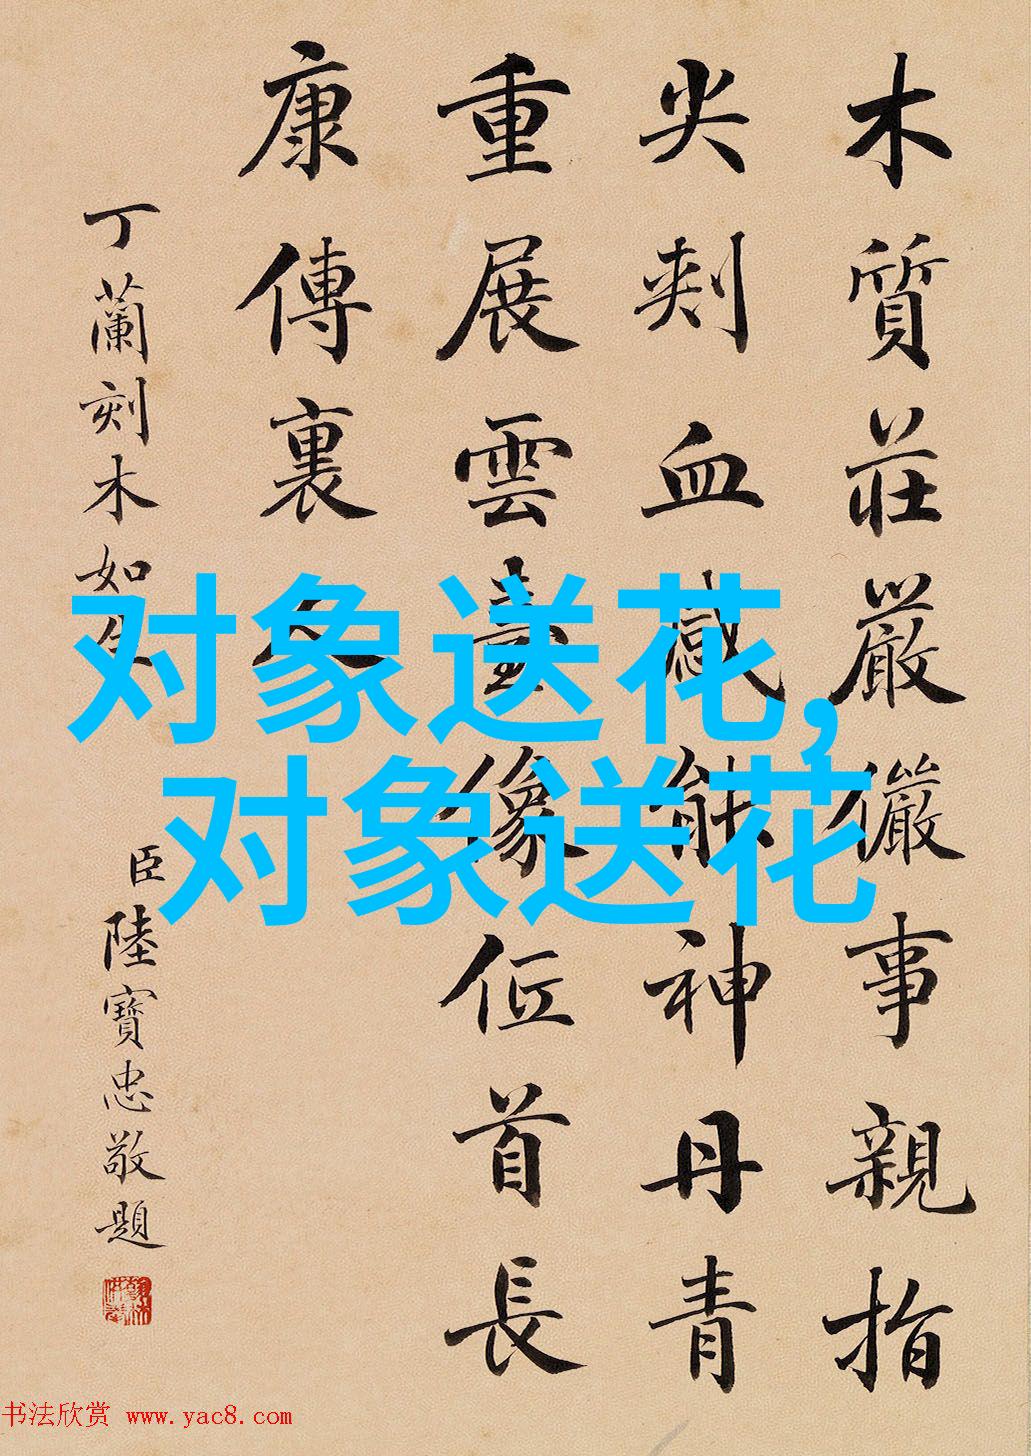 木質莊嚴儼事親指
尖刾血感能神丹青
重展雲臺像位首長
康傳裏人
丁蘭刻木如生
臣陸寶忠敬題
对象送花,
对象送花
书法欣赏 www.yac8.com